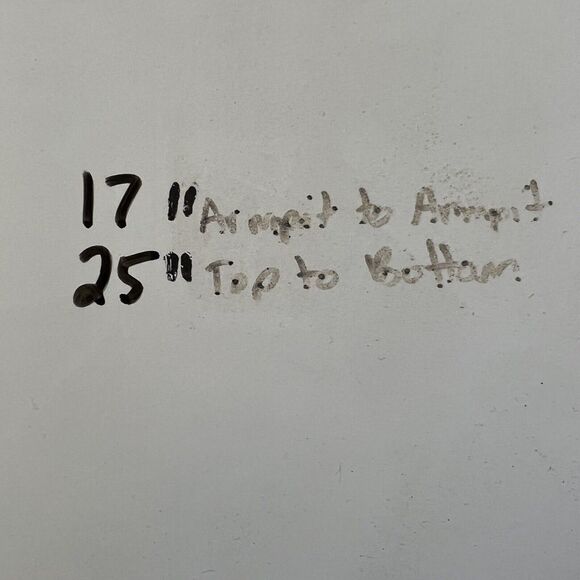 17" Armpit to Armpit
25" Top to Bottom